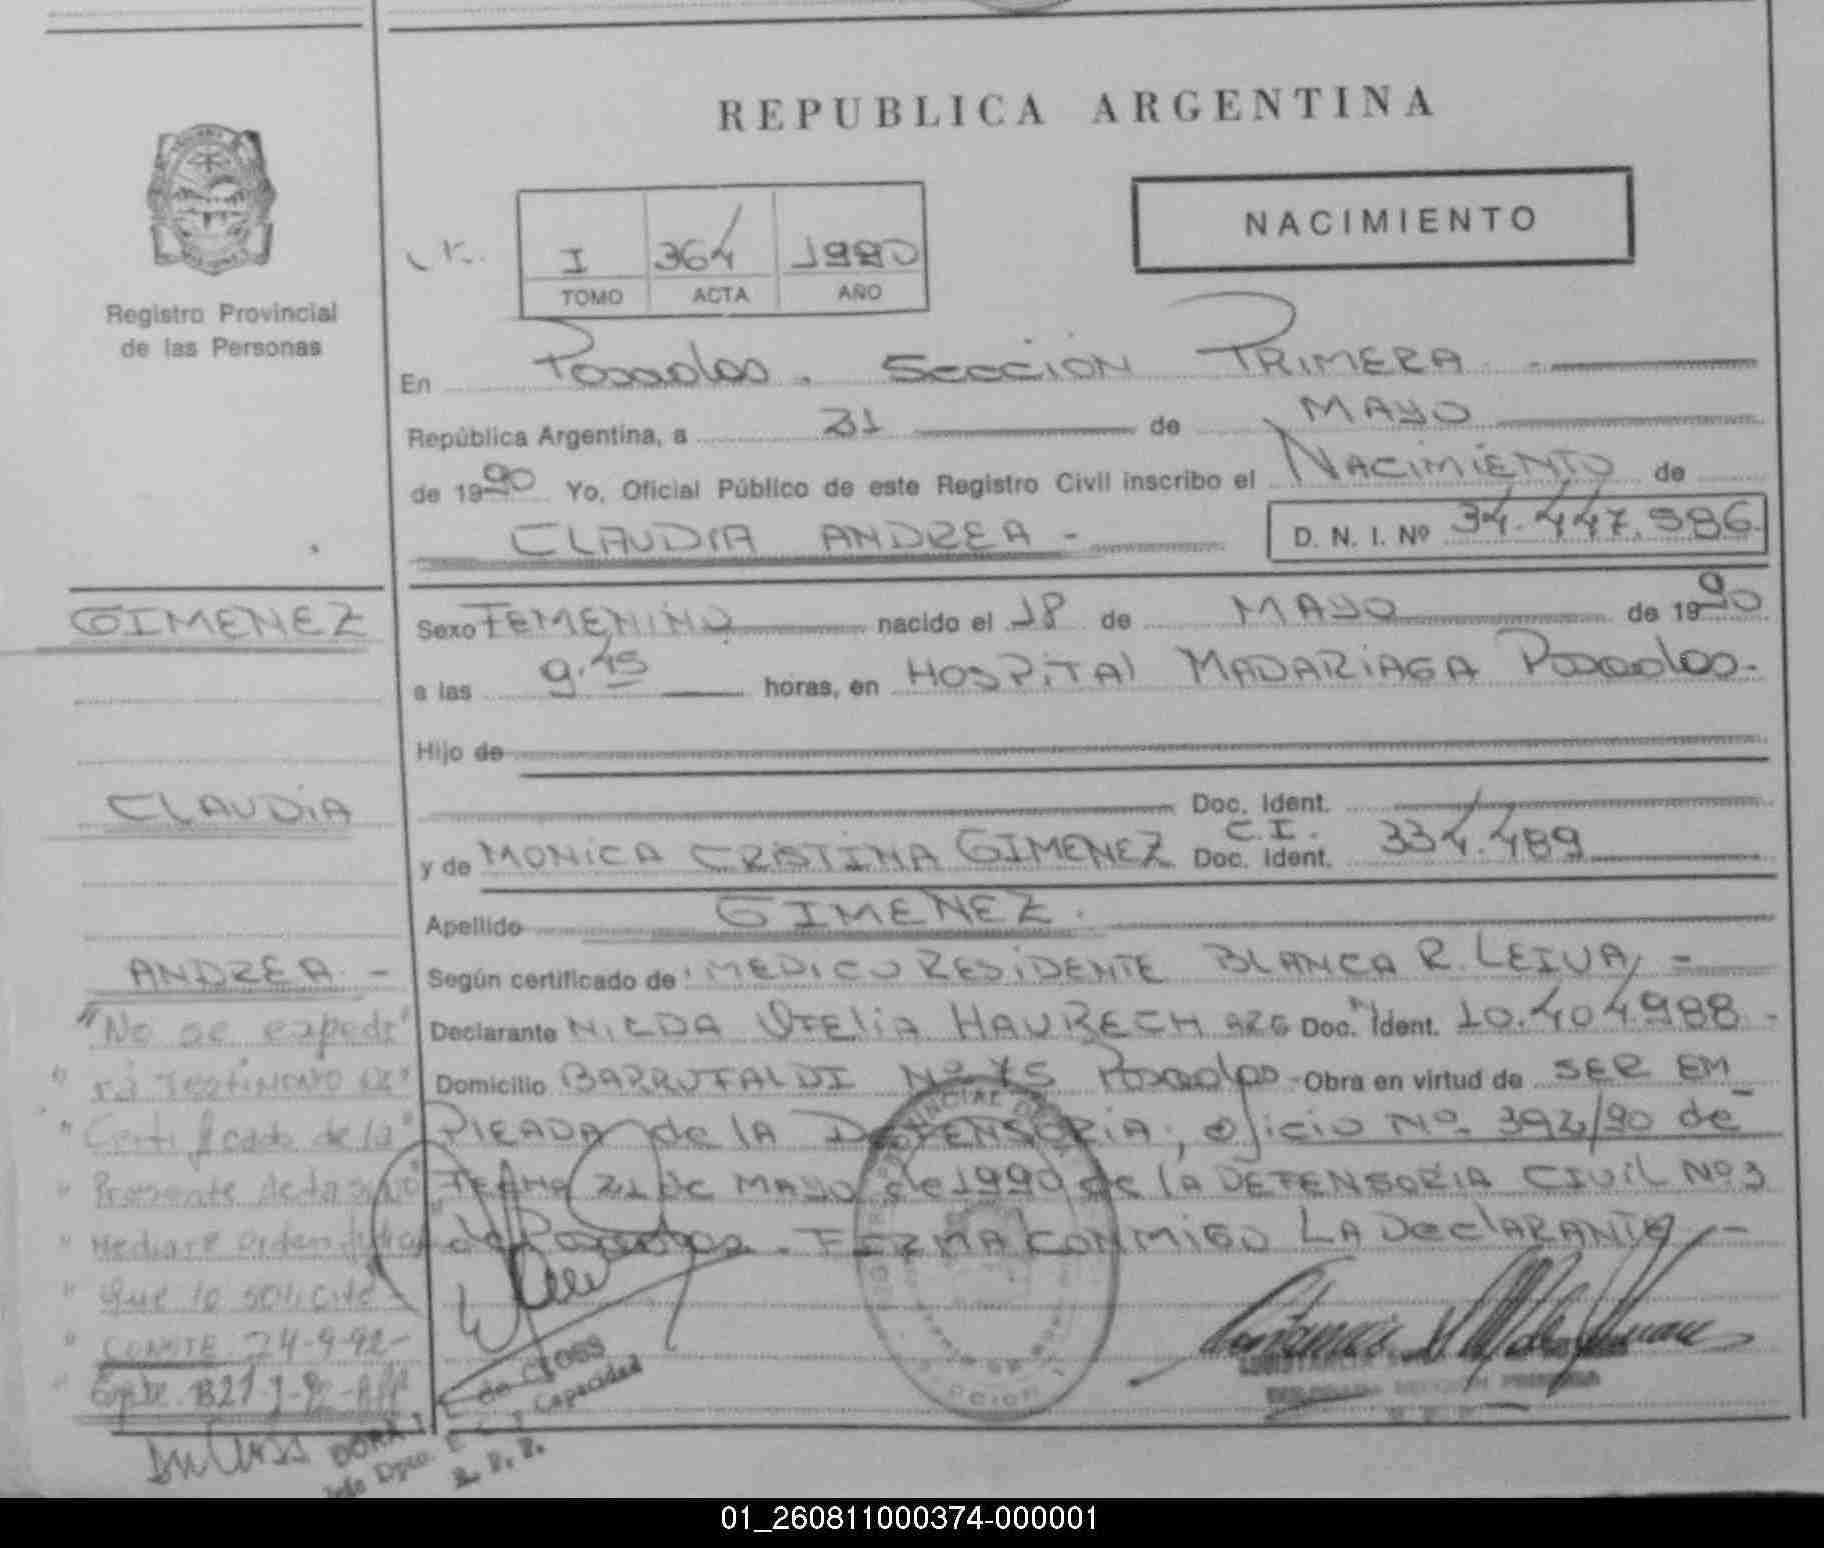 REPUBLICA ARGENTINA
NACIMIENTO
I 364 1990
TOMO ACTA AÑO
Registro Provincial
de las Personas
En Posadas. Sección PRIMERA
República Argentina, a 31 de MAYO
de 1990 Yo, Oficial Público de este Registro Civil inscribo el NACIMIENTO de
CLAUDIA ANDREA - D. N. I. Nº 34.447.586
GIMENEZ
CLAUDIA
ANDREA. -
Sexo FEMENINO nacido el 18 de MAYO de 1990
a las 9.45 horas, en HOSPITAL MADARIAGA Posadas.
Hijo de
Doc. Ident.
C.I.
y de MONICA CRISTINA GIMENEZ Doc. Ident. 334.489
Apellido GIMENEZ.
Según certificado de: MEDICO RESIDENTE BLANCA R. LEIVA, -
Declarante NILDA OFELIA HAURECH ARG Doc. Ident. 10.404.988 -
Domicilio BARRUFALDI Nº 75 Posadas - Obra en virtud de SER EM
PLEADA de la DEFENSORIA, oficio Nº 392/90 de
FECHA 21 de MAYO de 1990 de la DEFENSORIA CIVIL Nº 3
de Posadas. FIRMA CONMIGO LA DECLARANTE -
"No se expedi"
" rá Testimonio o"
" Certificado de la"
" Presente Acta salvo"
" Mediare orden
" que lo solicite
" CONSTE 24-9-92-
" Expte.
DORA
de CROSS
Jefe Dpto.
Capacidad
R. P. P.
SECCION PRIMERA
01_260811000374-000001